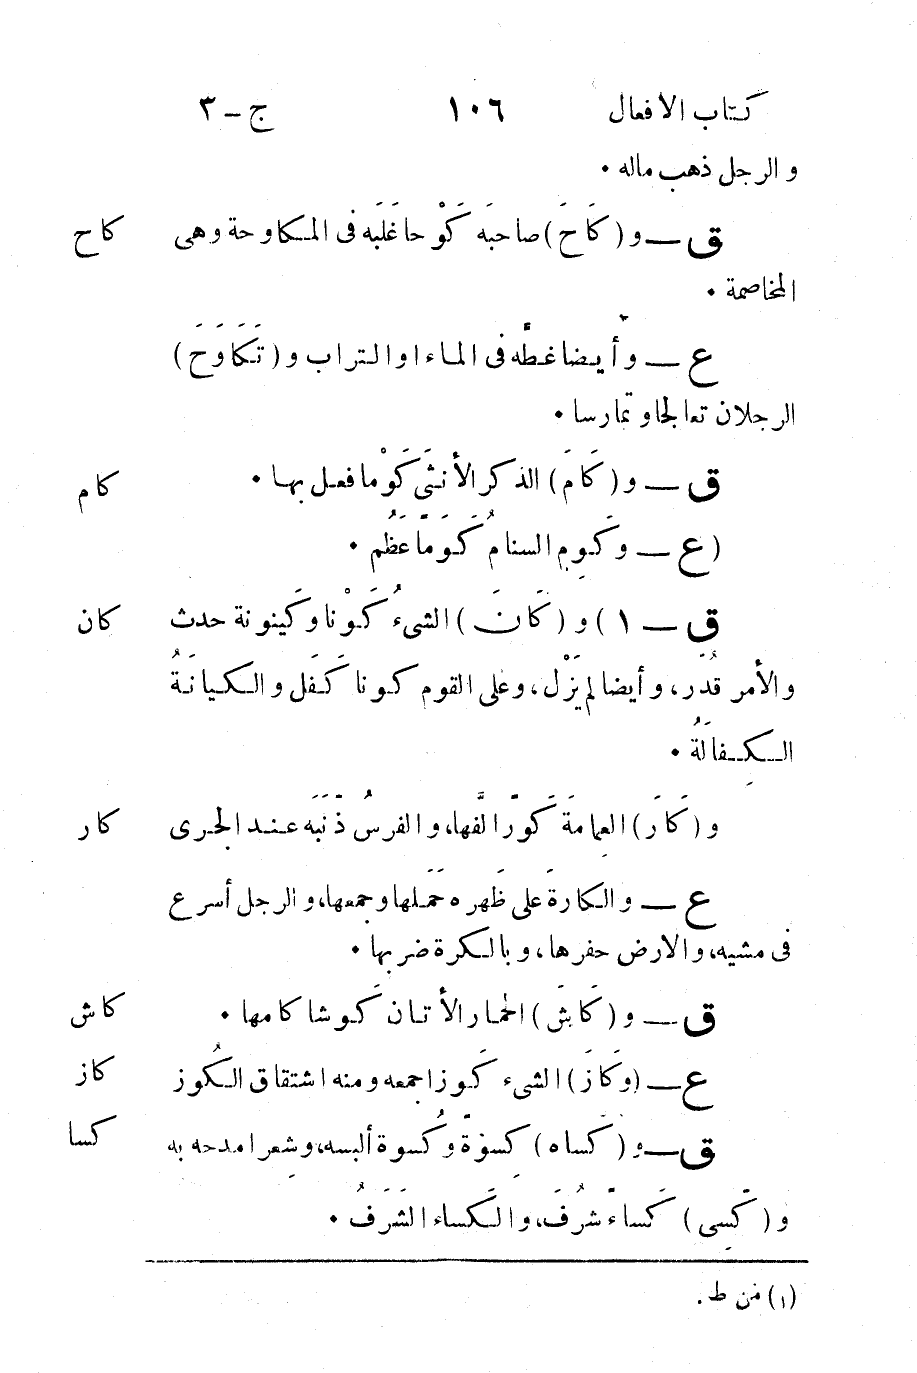 كتاب الافعال ١٠٦ ج - ٣
و الرجل ذهب ماله ٠
ق — و (كَاحَ) صاحبَه كَوْحا غَلَبَه فى المكاوحة وهى كاح
المخاصمة ٠
ع — وأيضا غطَّه فى الماء او التراب و (تَكَاوَحَ)
الرجلان تعالجا و تمارسا ٠
ق — و (كَامَ) الذكر الأنثَى كَوْما فعل بها ٠ كام
(ع — وكَوِم السنامُ كَوَماً عَظُم ٠
ق — ١) و (كَانَ) الشىءُ كَوْنا وكَينونة حدث كان
و الأمر قُدّر، و أيضا لم يَزْل، وعلى القوم كونا كَفَل و الكِيانَةُ
الكِفالَةُ ٠
و (كَارَ) العِمامَةَ كَوْرًا لَفَّها، و الفرسُ ذَنَبَه عند الجرى كار
ع — و الكارةَ على ظَهره حَمَلها وجمعها، و الرجل أسرع
فى مشيه، و الارض حفرها، و بالكرة ضربها ٠
ق — و (كَاشَ) الحمار الأتان كَوشا كامها ٠ كاش
ع — (وكَازَ) الشىء كَوزا جمعه ومنه اشتقاق الكُوز كاز
ق — و (كَساه) كِسوَةً وكُسوة ألبسه، و شعرا مدحه به كسا
و (كَسِى) كَساءً شرُفَ، و الكَساء الشَرَفُ ٠
(١) من ط.